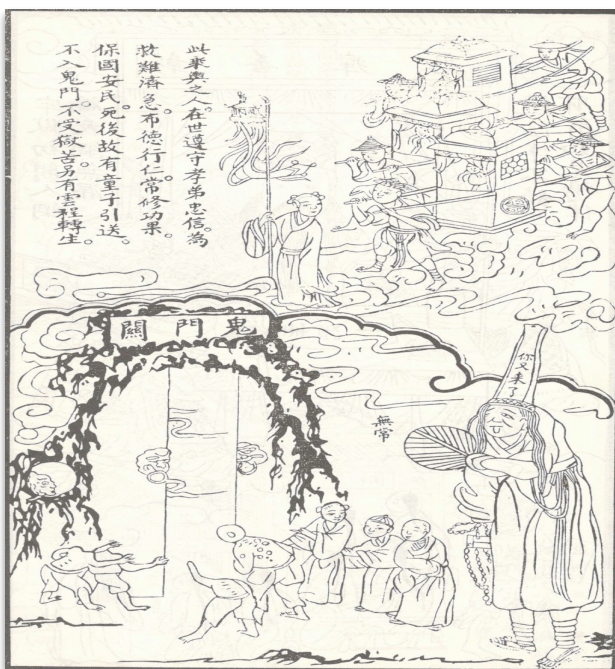 此乘輿之人。在世遵守孝弟忠信。為
救難濟急。布德行仁。常修功果。
保國安民。死後故有童子引送。
不入鬼門。不受獄苦。另有雲程轉生。
鬼門關
你又來了
無常